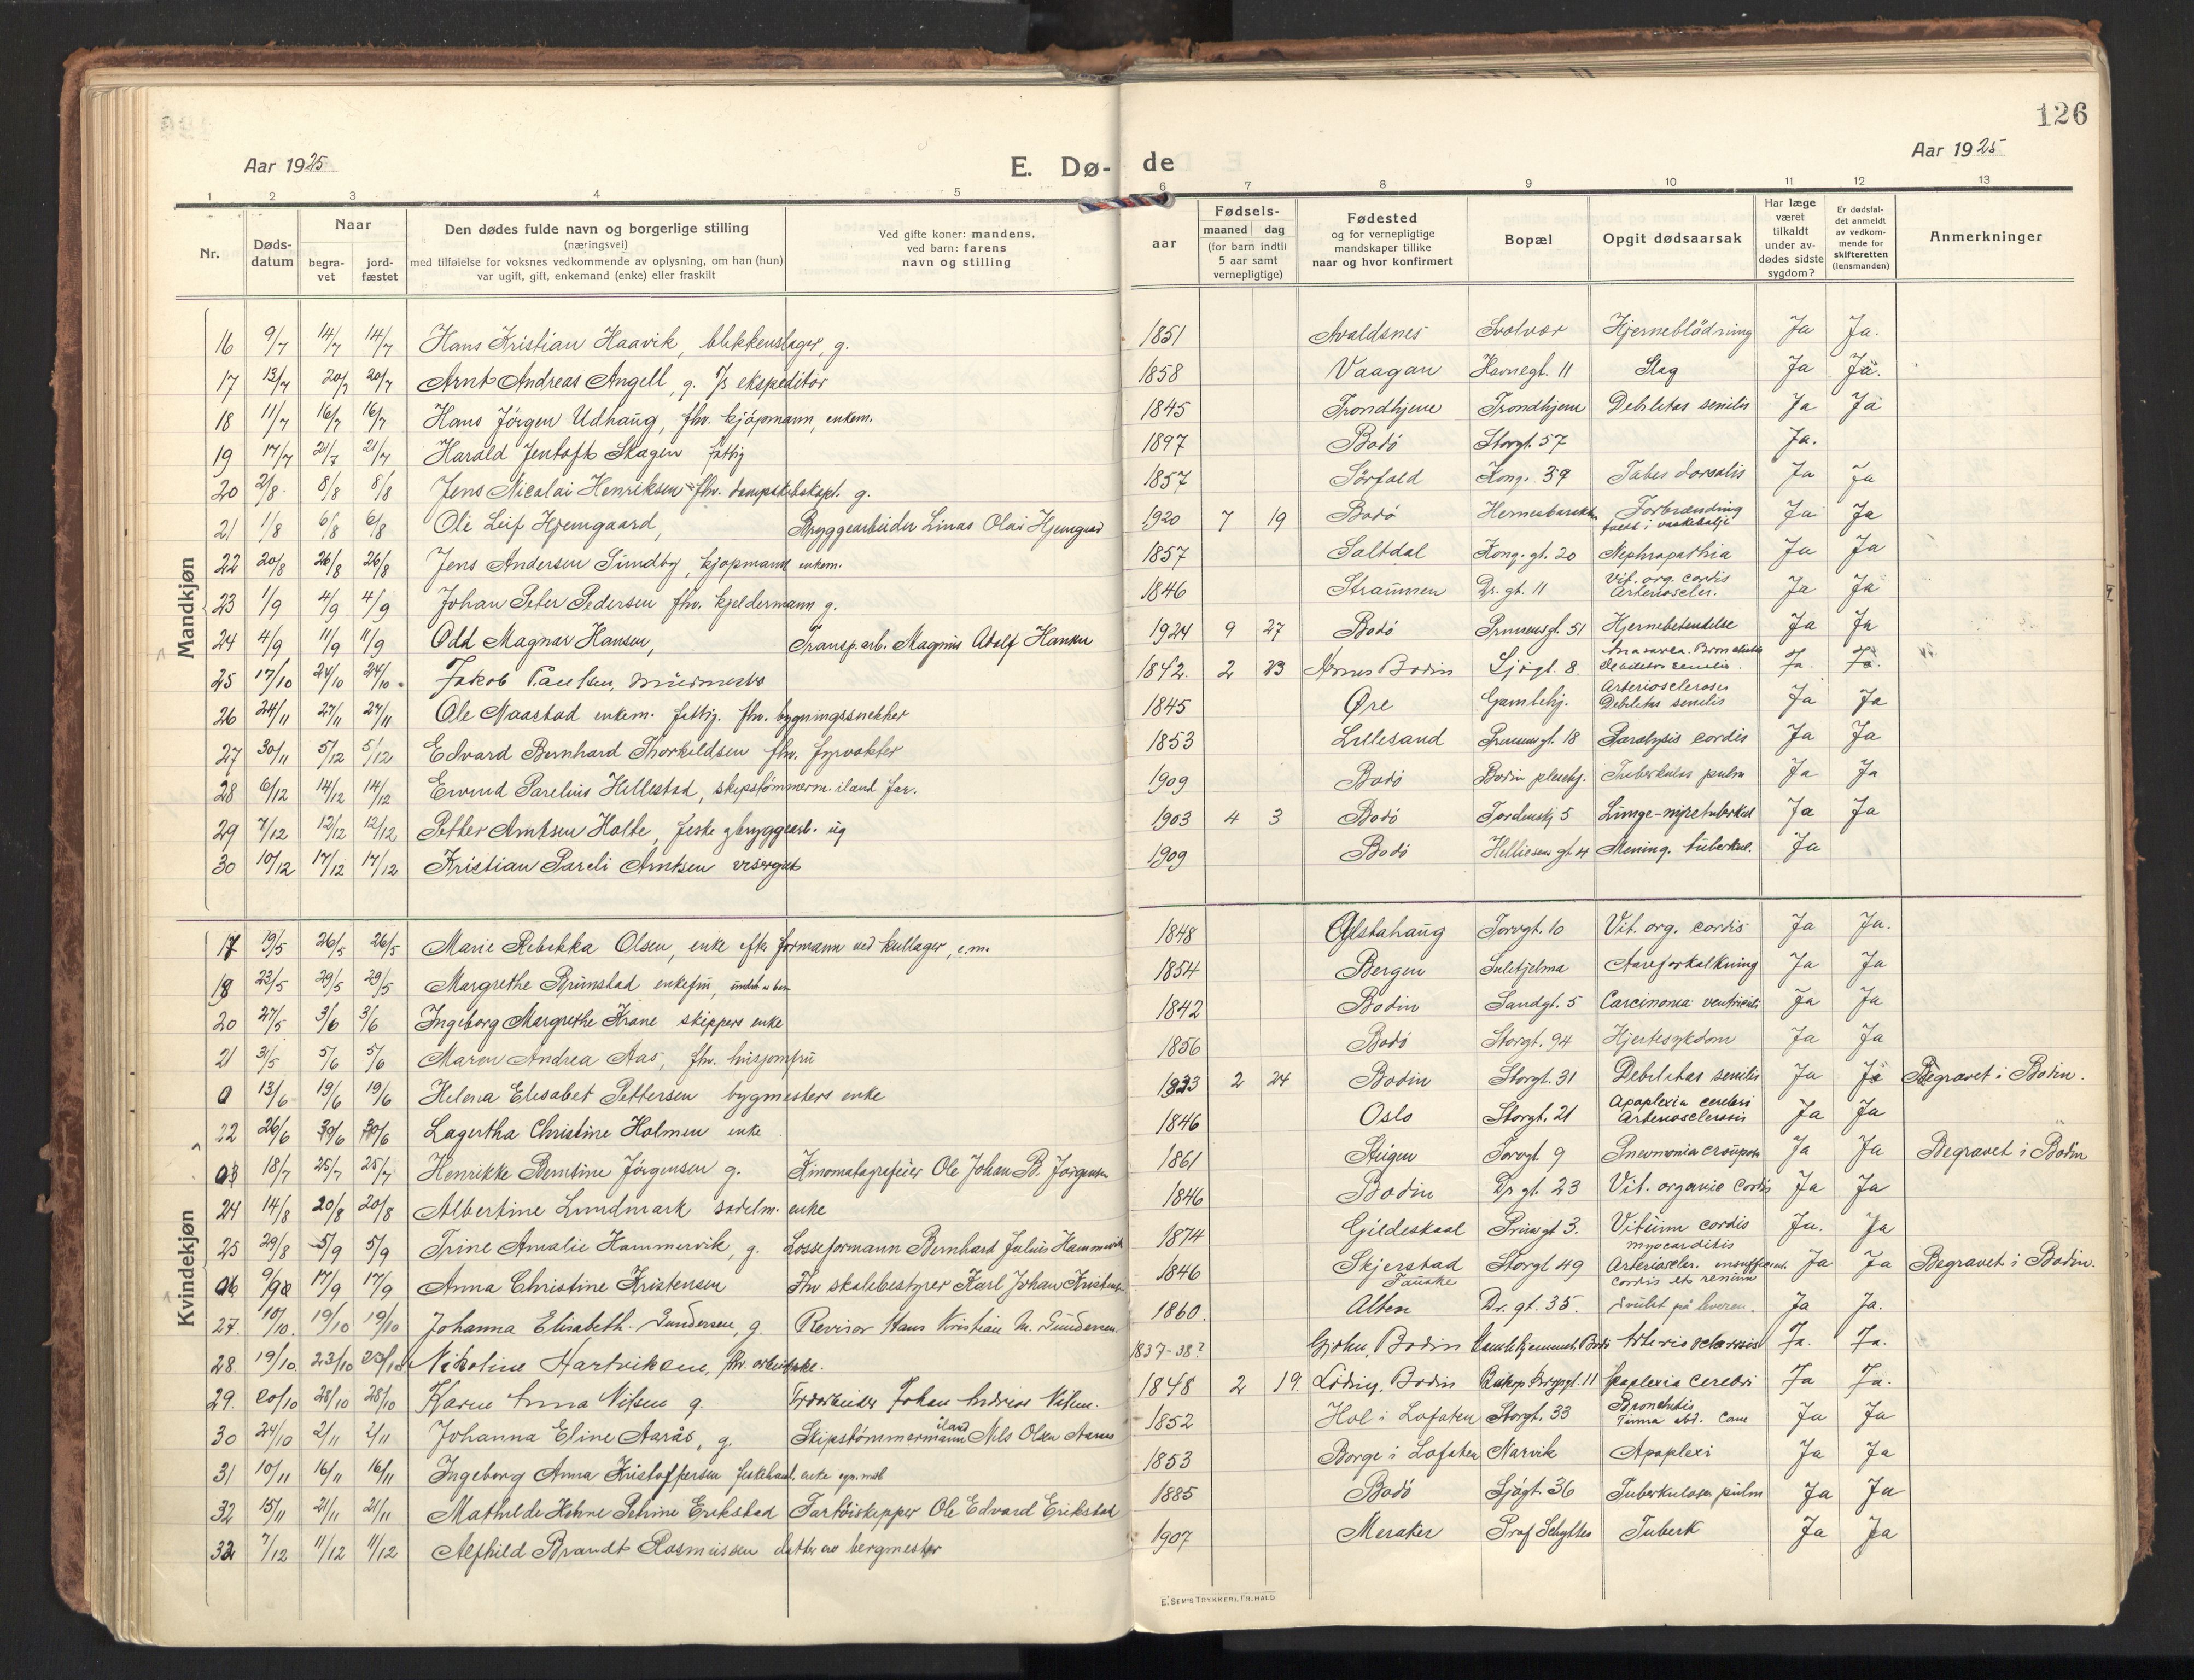 126
Aar 1925
E. Dø- de
Aar 1925
1 2 3 4 5 6 7 8 9 10 11 12 13
Nr.
Døds-datum
Naar
begra-vet
jord-fæstet
Den dødes fulde navn og borgerlige stilling
(næringsvei)
med tilføielse for voksnes vedkommende av oplysning, om han (hun)
var ugift, gift, enkemand (enke) eller fraskilt
Ved gifte koner: mandens,
ved barn: farens
navn og stilling
aar
Fødsels-
maaned dag
(for barn indtil
5 aar samt
vernepligtige)
Fødested
og for vernepligtige
mandskaper tillike
naar og hvor konfirmert
Bopæl
Opgit dødsaarsak
Har læge
været
tilkaldt
under av-
dødes sidste
sygdom?
Er dødsfal-
det anmeldt
av vedkom-
mende for
skifteretten
(lensmanden)
Anmerkninger
Mandkjøn
16 9/7 14/7 14/7 Hans Kristian Haavik, blikkenslager, g. 1851 Avaldsnes Svolvær Hjerneblødning Ja Ja.
17 13/7 20/7 20/7 Arnt Andreas Angell, g. ekspeditør 1858 Vaagan Havnegt. 11 Slag Ja Ja.
18 11/7 16/7 16/7 Hans Jørgen Udhaug, fhv. kjøpmann, enkem. 1845 Trondhjem Trondhjem Debilitas senilis Ja Ja
19 17/7 21/7 21/7 Harald Jentoft Skagen fattig 1897 Bodø Storgt. 57 Ja.
20 2/8 8/8 8/8 Jens Nicolai Henriksen fhv. dampskibskapt. g. 1857 Sørfold Kong. 39 Tabes dorsalis Ja Ja
21 1/8 6/8 6/8 Ole Leif Hjemgaard, Bryggearbeider Linas Olai Hjemgaard 1920 7 19 Bodø Forbrænding Ja Ja
faldt i vaskebalje
22 20/8 26/8 26/8 Jens Andersen Sundby, kjøpmann enkem. 1857 Saltdal Kong. gt. 20 Nephropathia Ja Ja
23 1/9 4/9 4/9 Johan Peter Pedersen fhv. kjeldermann g. 1846 Straumen Dr. gt. 11 Vit. org. cordis Ja Ja
Arterioscler.
24 4/9 11/9 11/9 Odd Magnar Hansen, Transp.arb. Magnus Adolf Hansen 1924 9 27 Bodø Prinsensgt. 51 Hjernebetendelse Ja Ja
25 17/10 24/10 24/10 Jakob Paulsen, murmester 1842. 2 23 Bodin Sjøgt. 8. Debilitas senilis. Ja. Ja.
26 24/11 27/11 27/11 Ole Naastad enkem. fattig. fhv. bygningssnekker 1845 Øre Gamlehj. Arteriosclerosis Ja Ja
Debilitas senilis
27 30/11 5/12 5/12 Edvard Bernhard Thorkildsen fhv. fyrvokter 1853 Lillesand Prinsensgt. 18 Paralysis cordis Ja Ja
28 6/12 14/12 14/12 Eivind Parelius Hillestad, skipstømmerm. iland far. 1909 Bodø Bodin pleiehj. Tuberkulos pulm Ja Ja
29 7/12 12/12 12/12 Petter Arntsen Holte, fiske bryggearb. ug 1903 4 3 Bodø Tordenskj 5 Lunge-nyretuberkul Ja Ja
30 10/12 17/12 17/12 Kristian Pareli Arntsen visergut 1909 Bodø Helliesens gt. 4 Mening. tuberkul. Ja
Kvindekjøn
17 19/5 26/5 26/5 Marie Rebekka Olsen, enke efter formann ved kullager, e.m. 1848 Alstahaug Torvgt. 10 Vit. org. cordis Ja Ja.
18 23/5 29/5 29/5 Margrethe Brunstad enkefru, 1854 Bergen Sulitjelma Aareforkalkning Ja Ja
20 27/5 3/6 3/6 Ingeborg Margrethe Krane skippers enke 1842 Bodin Sandgt. 5 Carcinoma ventriculi Ja Ja
21 31/5 5/6 5/6 Maren Andrea Aas, fhv. husjomfru 1856 Bodø Storgt. 94 Hjertesykdom Ja Ja
0 13/6 19/6 19/6 Helena Elisabet Pettersen bygmesters enke 1833 2 24 Bodin Storgt. 31 Debilitas senilis Ja Ja Begravet i Bodin.
22 26/6 30/6 30/6 Lagertha Christine Holmen enke 1846 Oslo Storgt. 21 Apoplexia cerebri Ja Ja
Arteriosclerosis
18/7 25/7 25/7 Henrikke Berntine Jørgensen g. Kinomatografeier Ole Johan B. Jørgensen 1861 Steigen Torvgt 9 Pneumonia croupos Ja Ja Begravet i Bodin
24 14/8 20/8 20/8 Albertine Lundmark sadelm. enke 1846 Bodin Dr. gt. 23 Vit. organic cordis Ja Ja
25 29/8 5/9 5/9 Trine Amalie Hammervik, g. Losseformann Bernhard Julius Hammervik 1874 Gildeskaal Prinsgt 3. Vitium cordis Ja. Ja
myocarditis
17/9 17/9 Anna Christine Kristensen Fhv skolebestyrer Karl Johan Kristensen 1846 Skjerstad Storgt 49 Arterioscler. insufficient. Ja Ja Begravet i Bodin.
Fauske cordis et renum
27. 10/10. 19/10 19/10 Johanna Elisabeth Gundersen, g. Revisor Hans Kristian M. Gundersen. 1860. Alten Dr. gt. 35. Svulst på leveren. Ja Ja.
28. 19/10. 23/10 23/10 Nikoline Hartviksen, fhv. arbeiderske. 1837-38? Bodin Gamlehjemmet, Bodø Arteriosclerosis Ja. Ja.
29. 20/10 28/10 28/10 Karen Anna Nilsen g. Johan Andreas Nilsen. 1848 2 19. Løding, Bodin Biskop Krogsgt. 11 Apoplexia cerebri Ja Ja.
30 24/10 2/11 2/11 Johanna Eline Aarås, g. Skipstømmermann iland Nils Olsen Aaraas 1852 Hol i Lofoten Storgt. 33 Bronchitis Ja Ja
31 10/11 16/11 16/11 Ingeborg Anna Kristoffersen fiskehandl. enke 1853 Borge i Lofoten Narvik Apoplexi Ja Ja
32 15/11 21/11 21/11 Mathilde Helene Petrine Erikstad Fartøiskipper Ole Edvard Erikstad 1885 Bodø Sjøgt. 36 Tuberkulose pulm Ja Ja
33 7/12 11/12 11/12 Alfhild Brandt Rasmussen datter av bergmester 1907 Meraker Prof Schyttes Tuberk Ja Ja
E. SEM'S TRYKKERI, FR.HALD